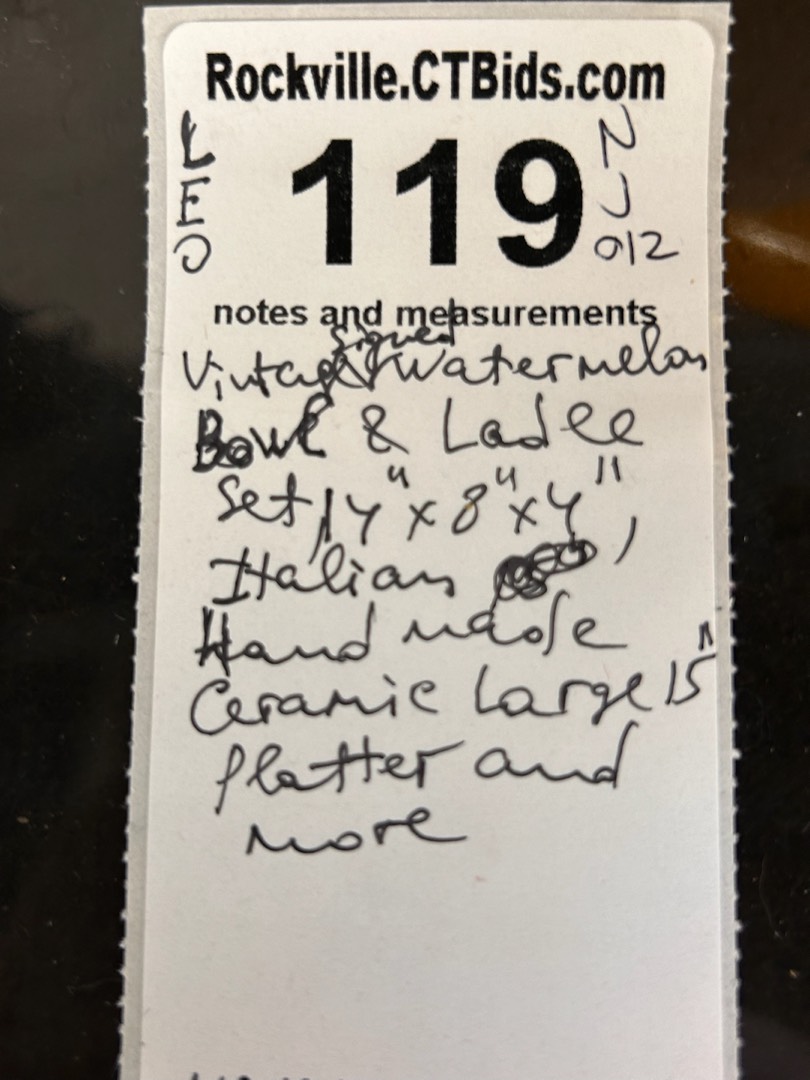 Rockville.CTBids.com
LEO
119
notes and measurements
signed
Vintage Watermelon
Bowl & Ladle
Set, 14" x 8" x 4"
Italian ,
Hand made
Ceramic Large 15"
platter and
more